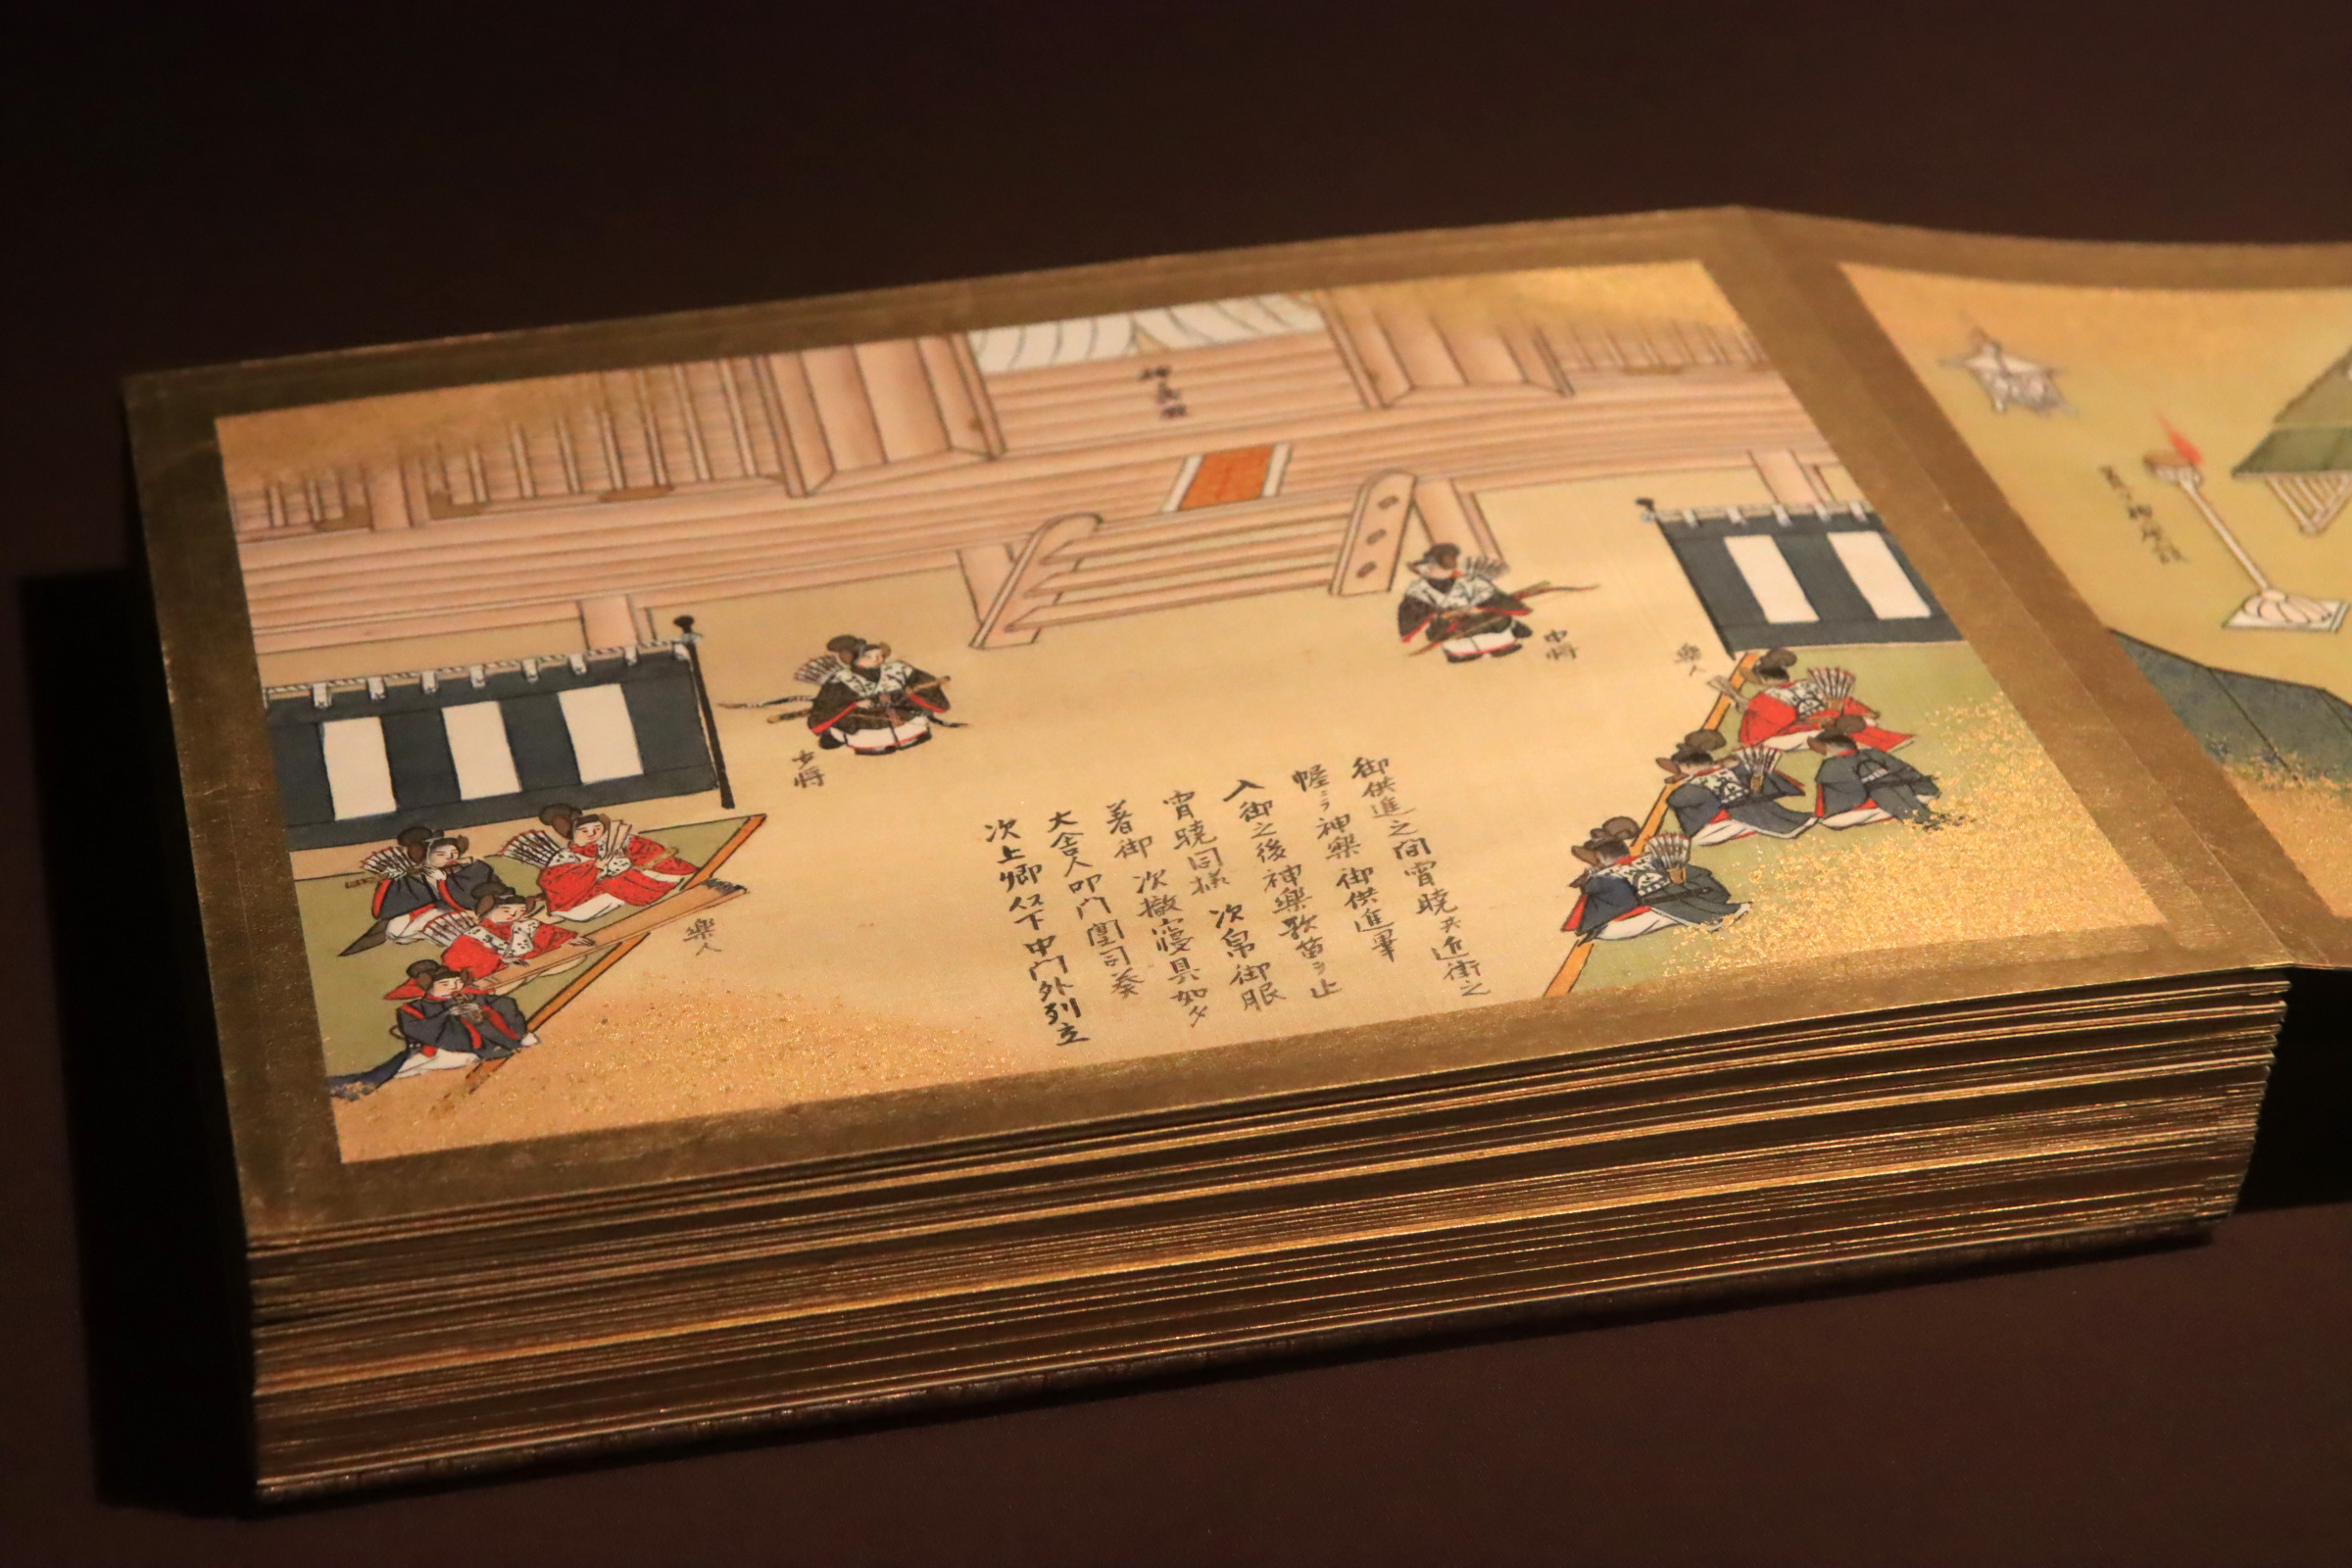 神嘉殿
中将
少将
楽人
楽人
御供進之间宵曉共近衛之
幄ニテ神楽御供進畢
入御之後神楽歌笛ヲ止
宵曉同様次帛御服
着御次撤寝具如夕
大舎人叩门闈司奏
次上卿以下中门外列立